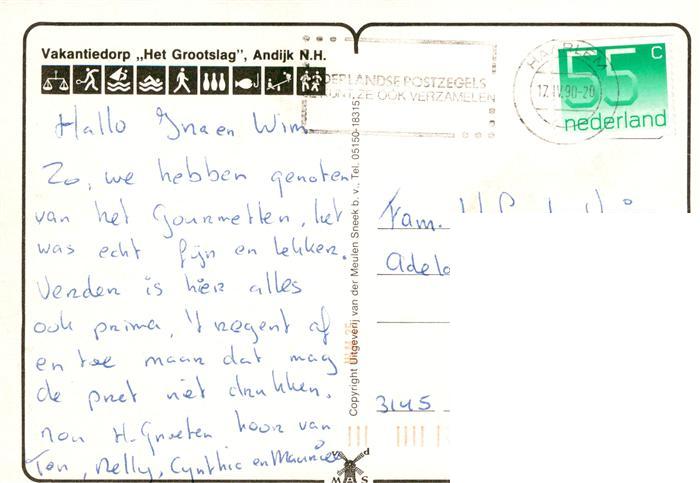 Vakantiedorp „Het Grootslag", Andijk N.H.
Hallo Ina en Wim
Zo, we hebben genoten
van het Gourmetten, het
was echt fijn en lekker.
Verder is hier alles
ook prima, 't regent af
en toe maar dat mag
de pret niet drukken.
nou H. Groeten hoor van
Ton, Nelly, Cynthia en Maurice
Copyright Uitgeverij van der Meulen Sneek b.v., Tel. 05150-18315
NEDERLANDSE POSTZEGELS
KUNT ZE OOK VERZAMELEN
HAARLEM
17.IV.90-20
55 c
nederland
Fam.
Adel
3145